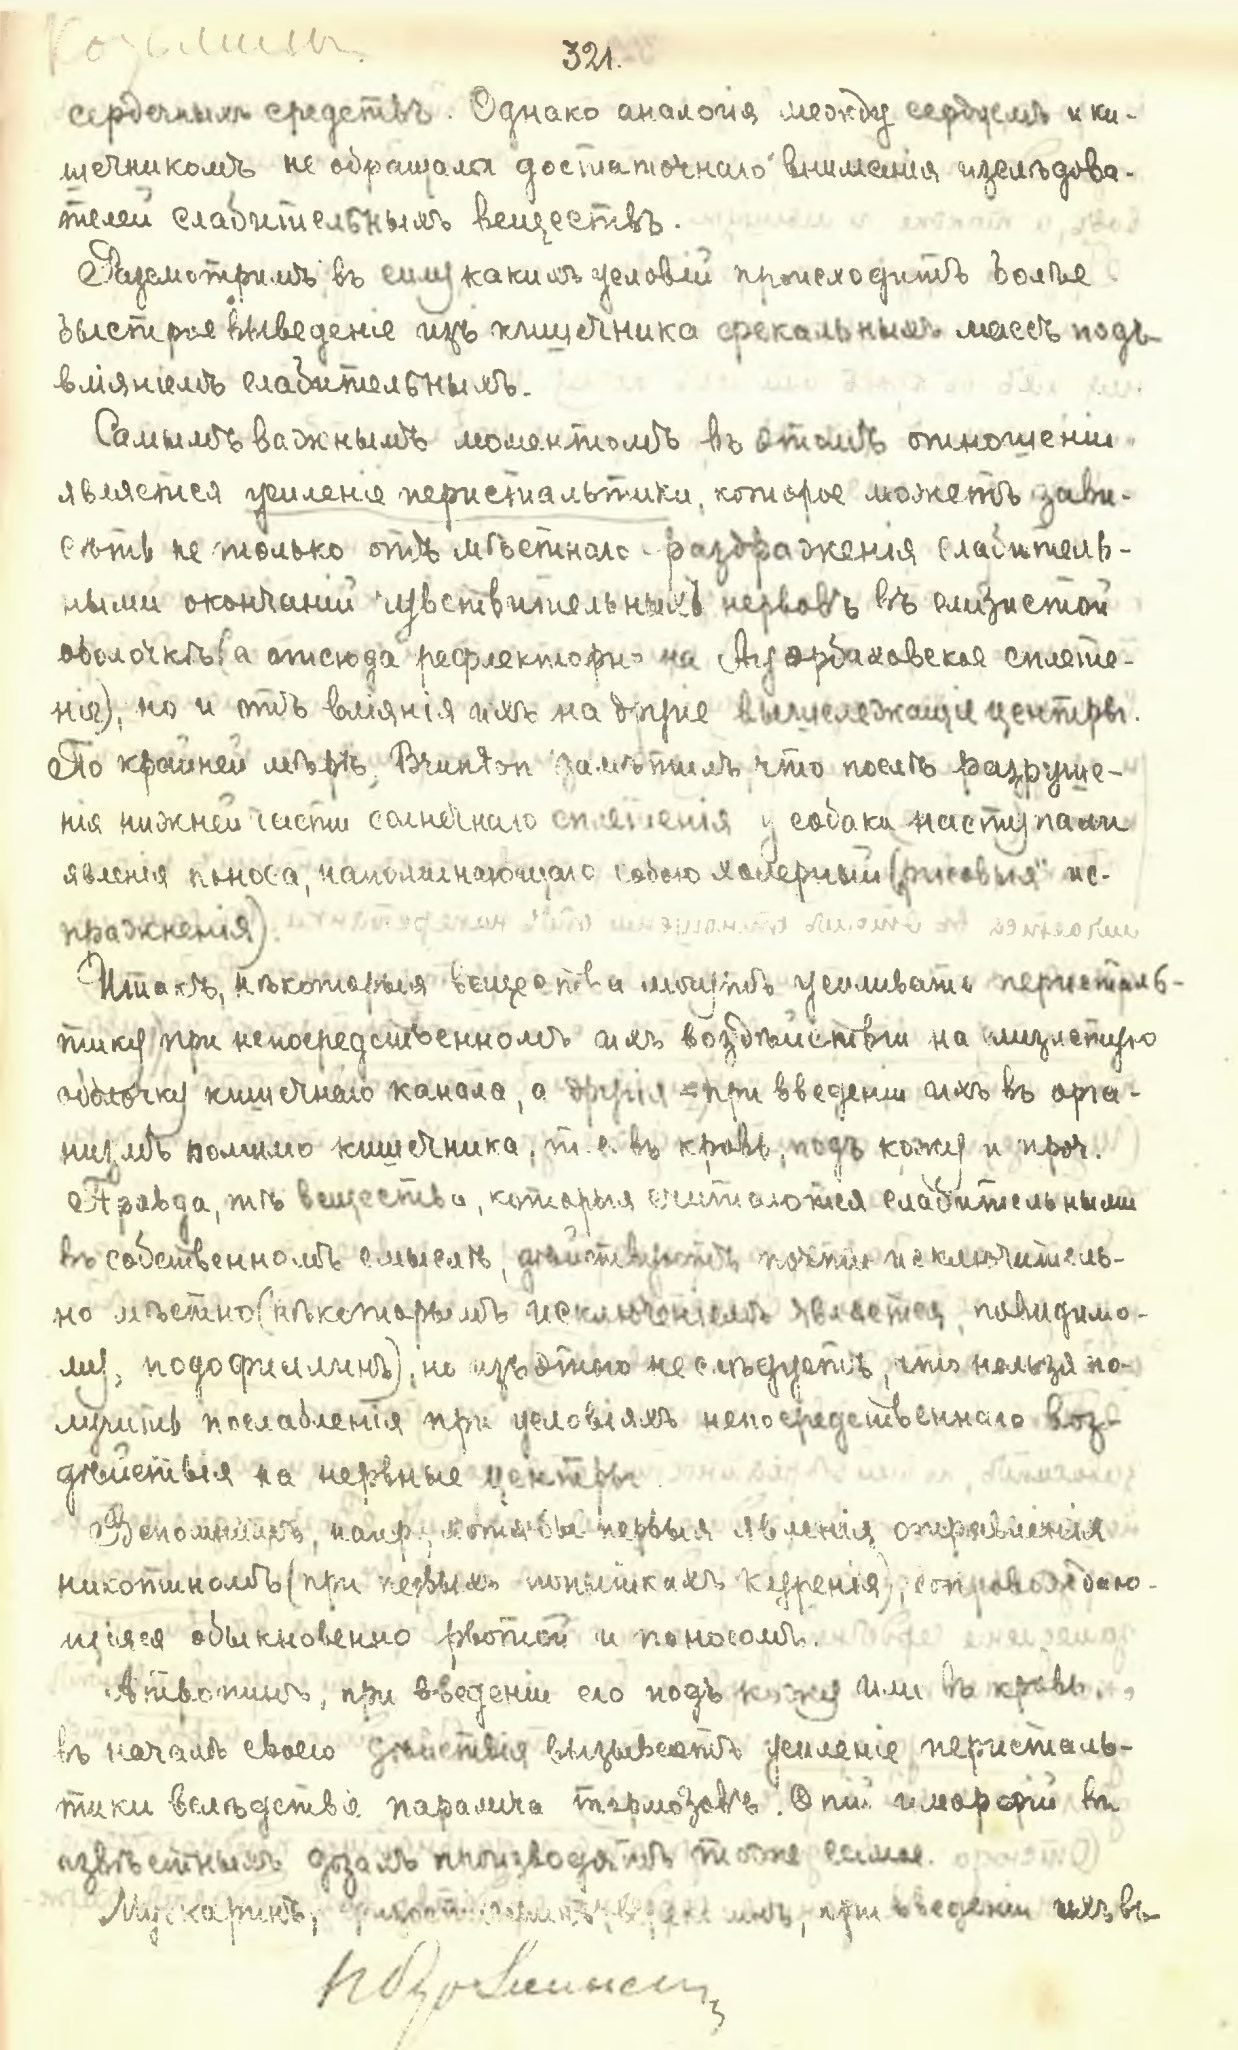 321.
сердечныхъ средствъ. Однако аналогія между сердцемъ и ки-
шечникомъ не обращала достаточнаго вниманія изслѣдова-
телей слабительныхъ веществъ.
Разсмотримъ въ силу какихъ условій происходитъ болѣе
быстрое выведеніе изъ кишечника фекальныхъ массъ подъ
вліяніемъ слабительныхъ.
Самымъ важнымъ моментомъ въ этомъ отношеніи
является усиленіе перистальтики, которое можетъ зави-
сѣть не только отъ мѣстнаго раздраженія слабитель-
ными окончаній чувствительныхъ нервовъ въ слизистой
оболочкѣ (а отсюда рефлекторно на Ауэрбаховское сплете-
ніе), но и отъ вліянія ихъ на другіе вышележащіе центры.
По крайней мѣрѣ, Brunton замѣтилъ, что послѣ разруше-
нія нижней части солнечнаго сплетенія у собаки наступали
явленія поноса, напоминающаго собою холерный (рисовыя ис-
пражненія).
Итакъ, нѣкоторыя вещества могутъ усиливать перисталь-
тику при непосредственномъ ихъ воздѣйствіи на слизистую
оболочку кишечнаго канала, а другія - при введеніи ихъ въ орга-
низмъ помимо кишечника, т. е. въ кровь, подъ кожу и проч.
Правда, тѣ вещества, которыя считаются слабительными
въ собственномъ смыслѣ, дѣйствуютъ почти исключитель-
но мѣстно (нѣкоторымъ исключеніемъ является, повидимо-
му, подофиллинъ), но изъ этого не слѣдуетъ, что нельзя по-
лучить послабленія при условіяхъ непосредственнаго воз-
дѣйствія на нервные центры.
Вспомнимъ, напр., хотя бы первыя явленія отравленія
никотиномъ (при первыхъ попыткахъ куренія), сопровождаю-
щіяся обыкновенно рвотой и поносомъ.
Атропинъ, при введеніи его подъ кожу или въ кровь,
въ началѣ своего дѣйствія вызываетъ усиленіе перисталь-
тики вслѣдствіе паралича тормозовъ. Опій и морфій въ
извѣстныхъ дозахъ производятъ тоже самое.
Мускаринъ, при введеніи ихъ въ